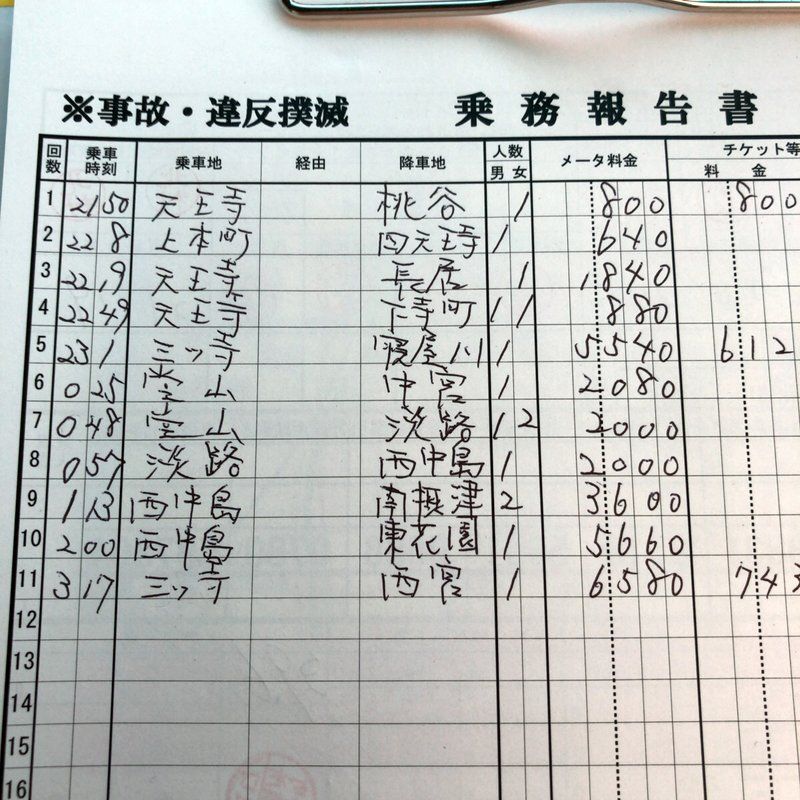 ※事故・違反撲滅 乗務報告書
回数 乗車時刻 乗車地 経由 降車地 人数 男 女 メータ料金 チケット等 料金
1 21 50 天王寺 桃谷 1 800 800
2 22 8 上本町 四天王寺 1 640
3 22 19 天王寺 長居 1 1840
4 22 49 天王寺 下寺町 1 1 880
5 23 1 三ッ寺 寝屋川 1 5540 612
6 0 25 堂山 中宮 1 2080
7 0 48 堂山 淡路 1 2 2000
8 0 57 淡路 西中島 1 2000
9 1 13 西中島 南摂津 2 3600
10 2 00 西中島 東花園 1 5660
11 3 17 三ッ寺 西宮 1 6580 743
12
13
14
15
16